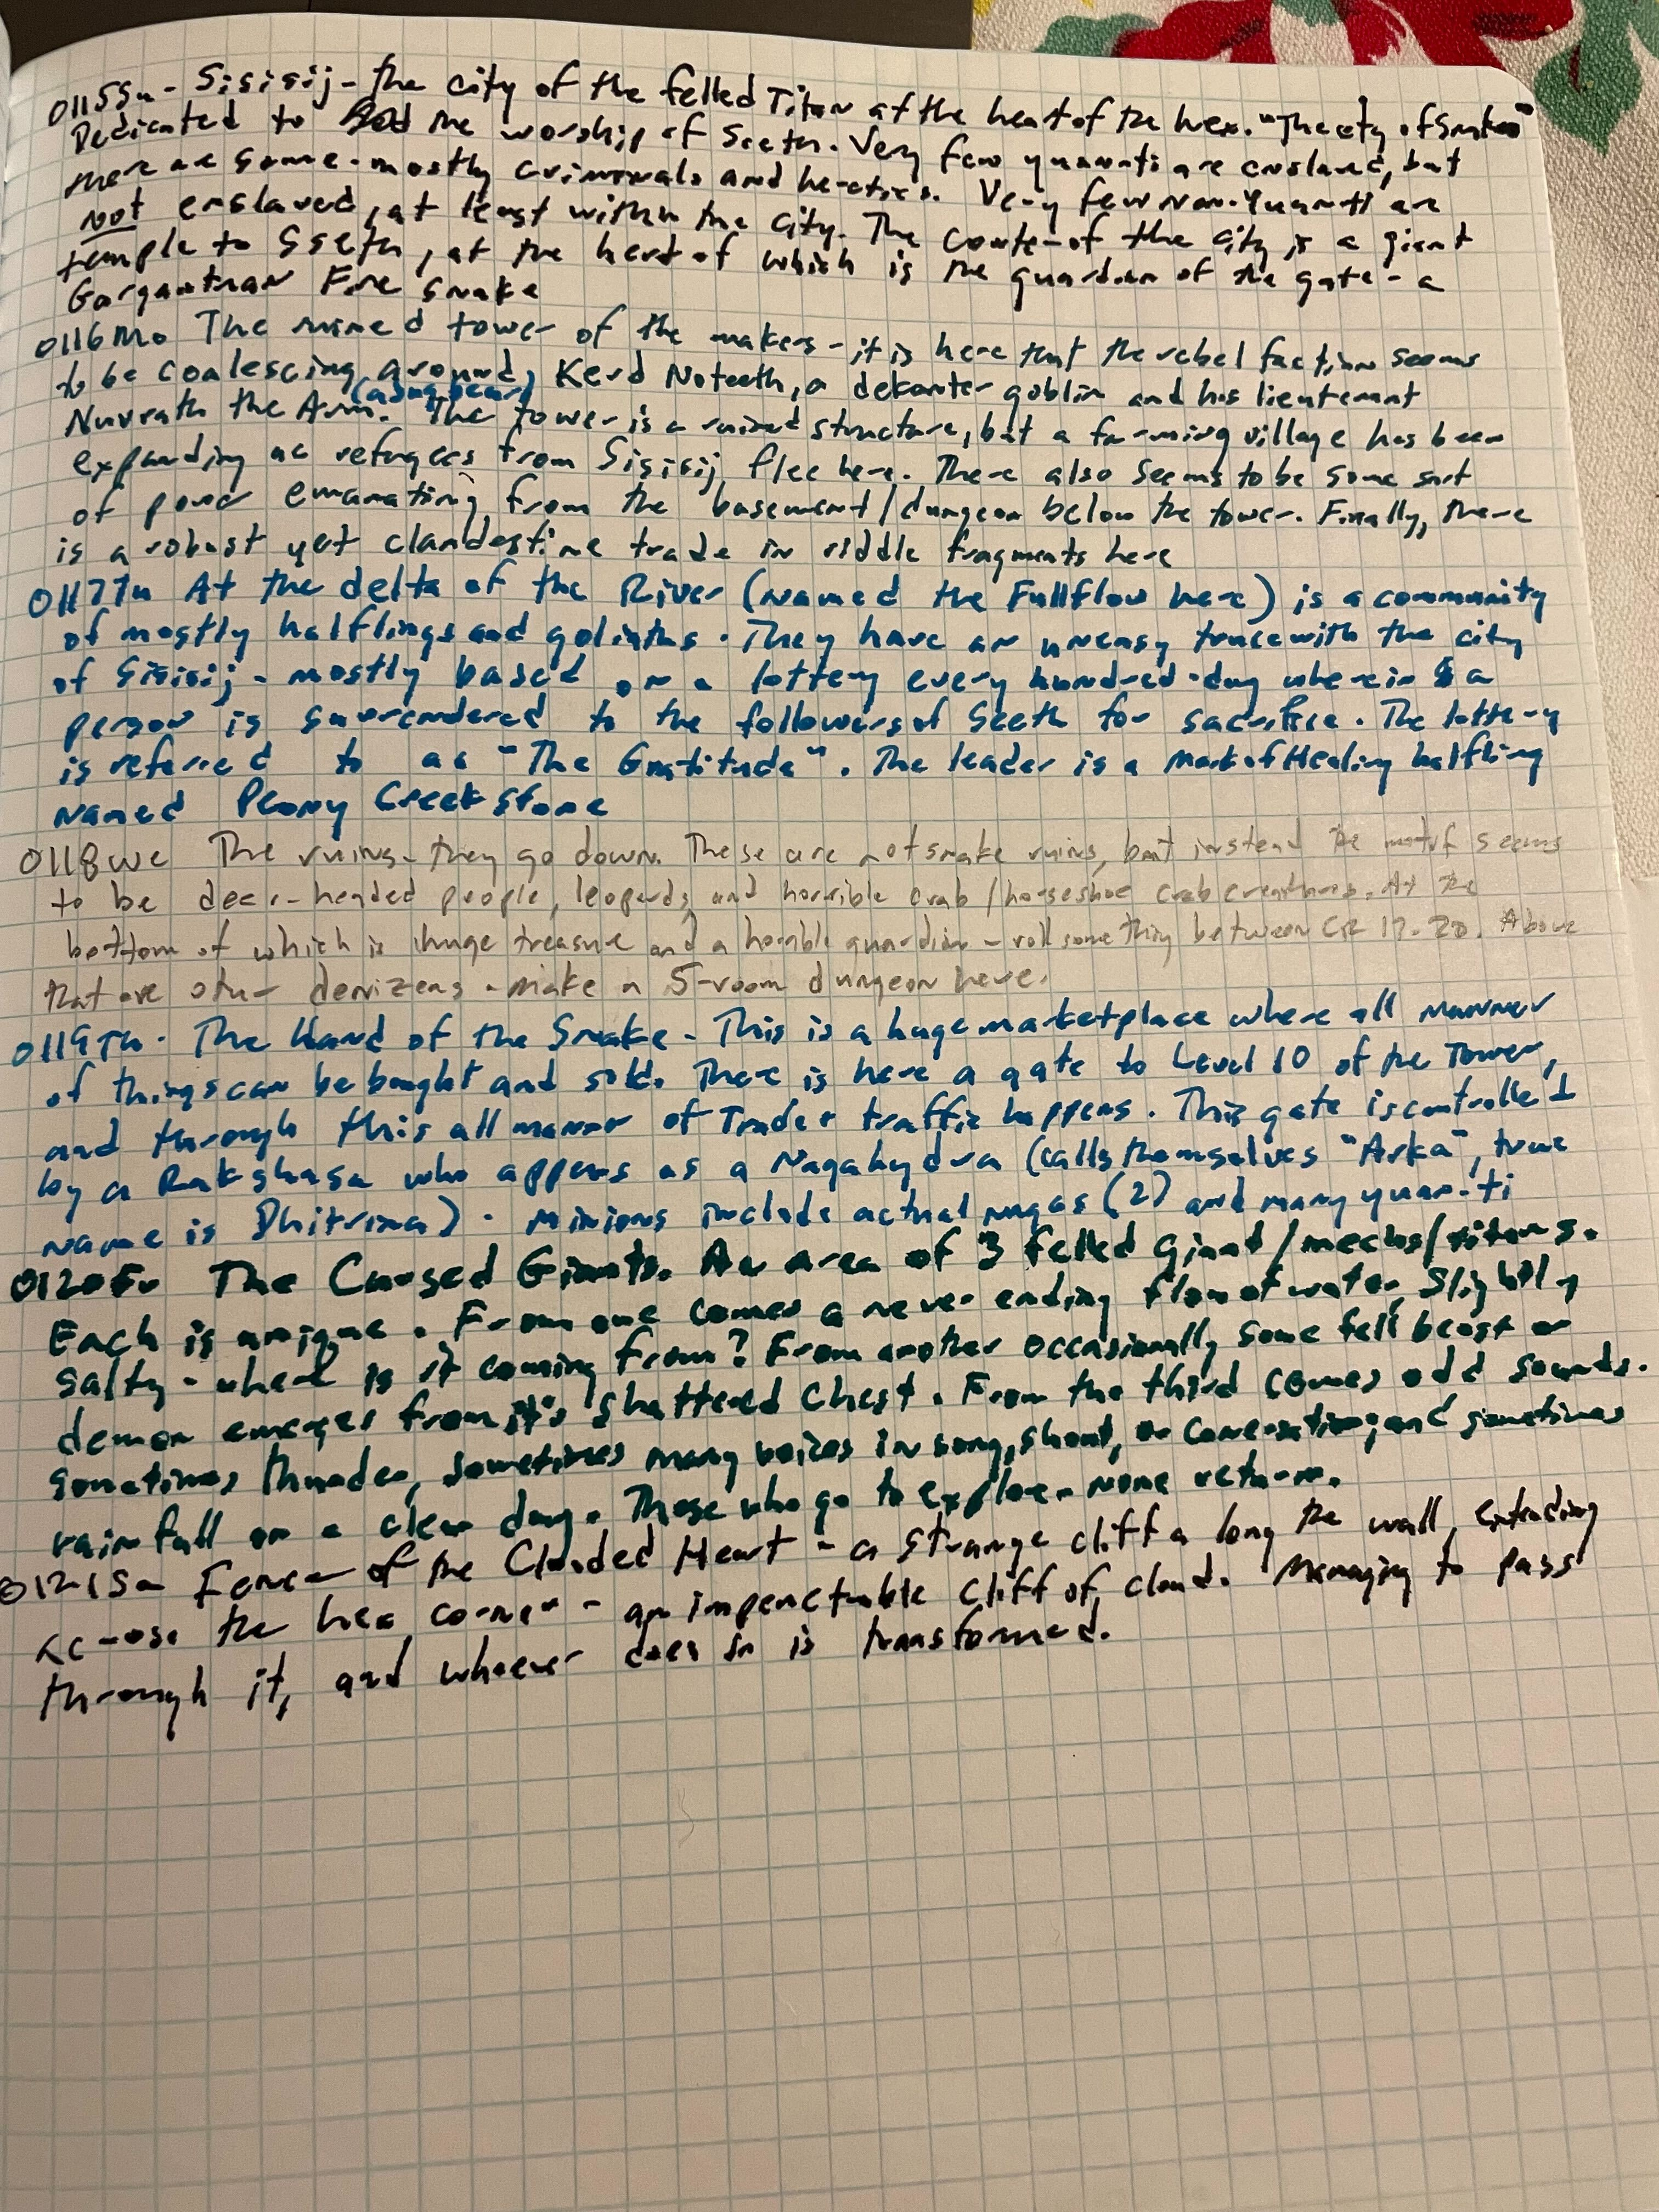 0115Su - Sisisij - the city of the felled Titan at the heart of the hex. "The city of Snakes"
Dedicated to the worship of Sseth. Very few yuan-ti are enslaved, but
there are some - mostly criminals and heretics. Very few non-Yuan-ti are
not enslaved, at least within the city. The center of the city is a giant
temple to Sseth, at the heart of which is the guardian of the gate - a
Gargantuan Fire Snake
0116Mo The ruined tower of the makers - it is here that the rebel faction seems
to be coalescing around Kerd Noteeth, a dekanter goblin and his lieutenant
Nuvrath the Arm. The tower is a ruined structure, but a farming village has been
expanding as refugees from Sisisij flee here. There also seems to be some sort
of power emanating from the basement/dungeon below the tower. Finally, there
is a robust yet clandestine trade in riddle fragments here
0117Tu At the delta of the River (named the Fullflow here) is a community
of mostly halflings and goliaths. They have an uneasy truce with the city
of Sisisij - mostly based on a lottery every hundred-day wherein a
person is surrendered to the followers of Sseth for sacrifice. The lottery
is referred to as "The Gratitude". The leader is a Mark of Healing halfling
named Peony Creekstone
0118We The ruins - they go down. These are not snake ruins, but instead the motif seems
to be deer-headed people, leopards, and horrible crab/horseshoe crab creatures. At the
bottom of which is a huge treasure and a horrible guardian - roll something between CR 17-20. Above
that are other denizens - make a 5-room dungeon here.
0119Th - The Hand of the Snake - This is a huge marketplace where all manner
of things can be bought and sold. There is here a gate to Level 10 of the Tower,
and through this all manner of Trade + traffic happens. This gate is controlled
by a Rakshasa who appears as a Nagahydra (calls themselves "Arka", true
name is Dhitrima). Minions include actual nagas (2) and many yuan-ti
0120Fr The Cursed Giants. An area of 3 felled giant/mechs/titans.
Each is unique. From one comes a never ending flow of water, slightly
salty - where is it coming from? From another occasionally some fell beast or
demon emerges from it's shattered chest. From the third comes odd sounds.
Sometimes thunder, sometimes many voices in song, shout, or conversation; and sometimes
rain fall on a clear day. Those who go to explore - none return.
0121Sa Fence of the Clouded Heart - a strange cliff a long the wall, extending
across the hex corner - an impenetrable cliff of cloud. Managing to pass
through it, and whoever does so is transformed.